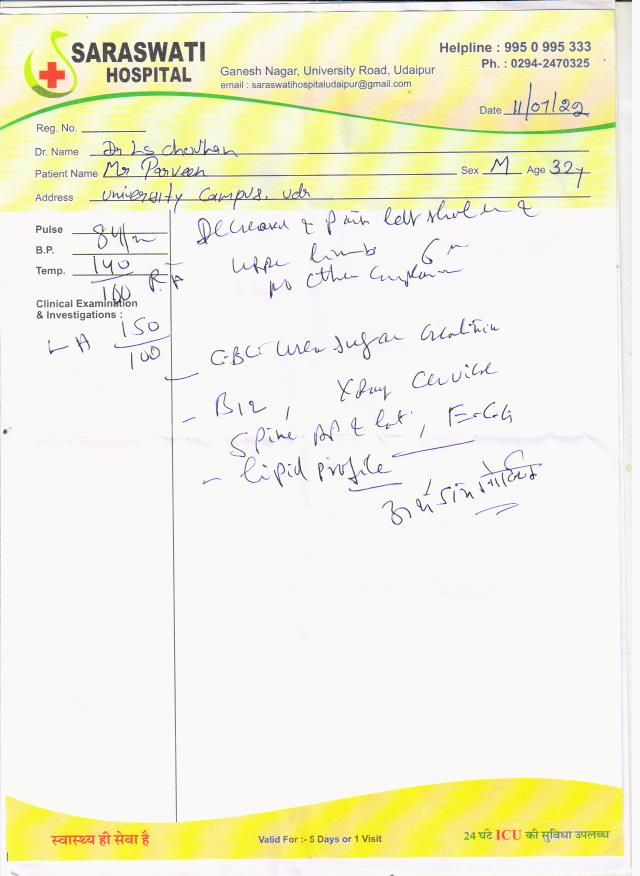 SARASWATI
HOSPITAL
Ganesh Nagar, University Road, Udaipur
email : saraswatihospitaludaipur@gmail.com
Helpline : 995 0 995 333
Ph. : 0294-2470325
Date 11/07/22
Reg. No.
Dr. Name Dr LS Chouhan
Patient Name Mr Parveen Sex M Age 32y
Address University Campus, Udr
Pulse 84/m
B.P. 140
Temp. 100 RA
Clinical Examination
& Investigations :
LA 150
100
pain left shoulder &
upper limb 6 m
no other
CBC urea sugar creatinine
- B12, X Ray Cervical
Spine AP & Lat, E.C.G
- lipid profile
स्वास्थ्य ही सेवा है
Valid For :- 5 Days or 1 Visit
24 घंटे ICU की सुविधा उपलब्ध